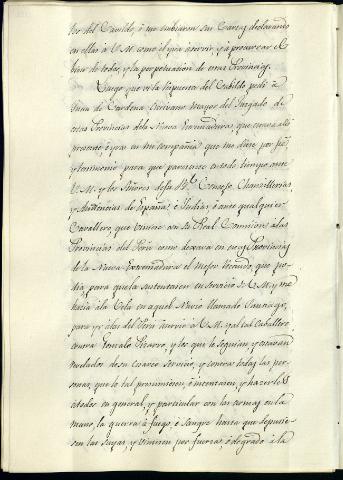 bo del Cavildo, é me embiaren sus Cartas declarando
en ellas á V.M. como el ir á servir, y á procurar el
bien de todos, y la perpetuacion de estas Provincias.
Luego que vi la respuesta del Cabildo pedi á
Juan de Cardena Escrivano mayor del Juzgado de
estas Provincias de la Nueva Extremadura, que estava alli
presente, é yva en mi compañia que me diese por fee
y testimonio para que pareciese en todo tiempo ante
V.M. y los Señores de su Rl. Consejo, Chanzillerias,
y Audiencias de España, é Indias é ante qualquier
Cavallero, que viniese con su Real Comision á las
Provincias del Peru como dexava en estas Provincias
de la Nueva Extremadura el mejor Recaudo, que po-
dia, para que la sustentasen en servicio de V.M. y me
hacia á la Vela en aquel Navio llamado Santiago,
para yr á las del Perú servir á V.M. y al tal Cavallero
contra Gonzalo Pizarro, y los que le seguian, y estavan
revelados de su Cesareo servicio, y contra todas las per-
sonas, que lo tal presumiesen, é intentasen, y hazerles
á todos en general, y particular con las armas en la
mano, la guerra á fuego, é sangre hasta que depusie-
sen las suyas, y viniesen por fuerza, ó de grado á la